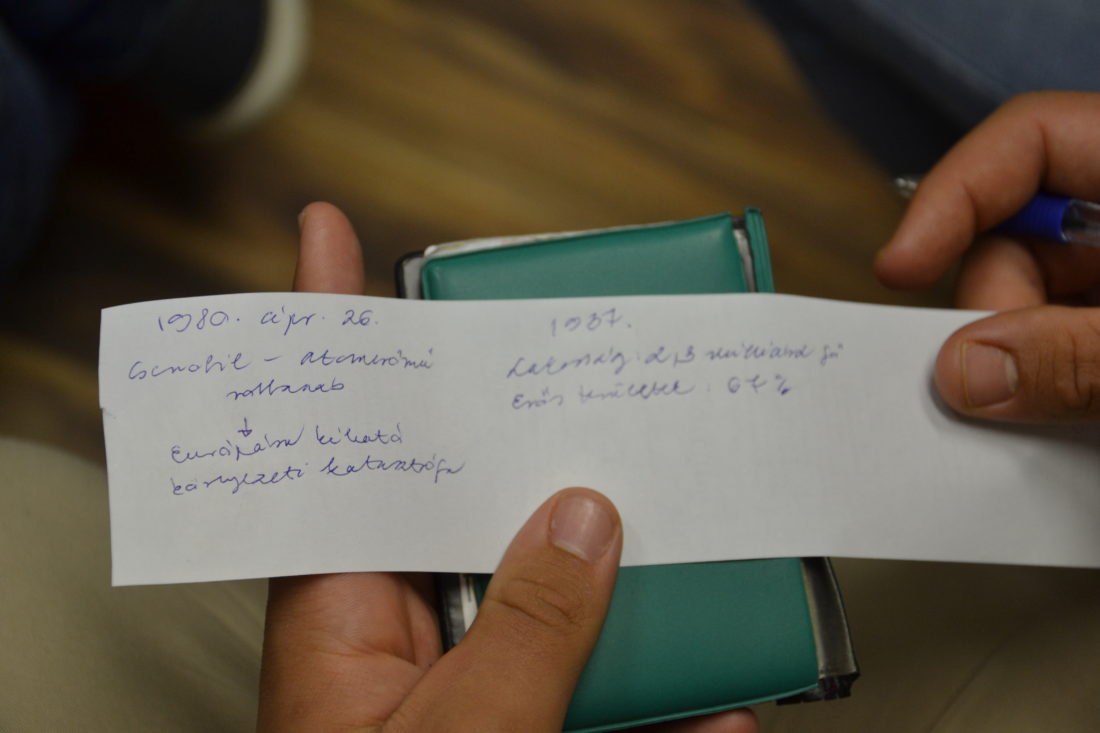 1980. ápr. 26.
Csernobil - atomerőmű
robbanás
↓
Európára kiható
környezeti katasztrófa
1937.
Lakosság: 2,3 milliárd fő
Erős területek: 67%